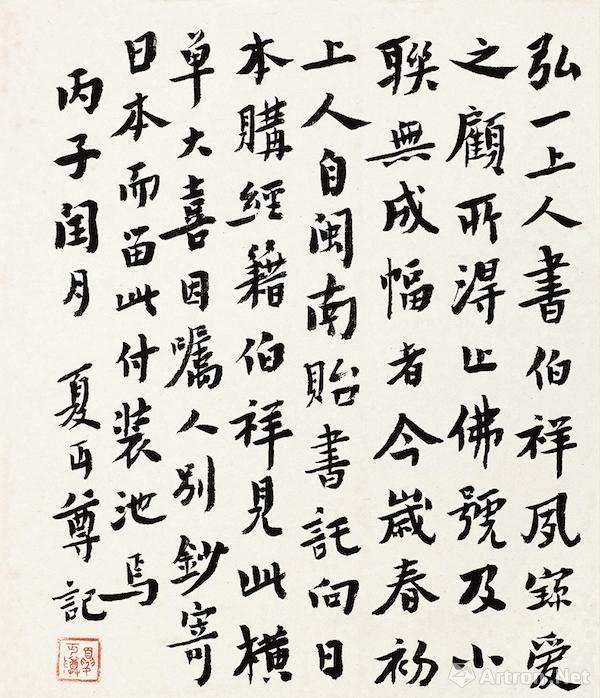 弘一上人書伯祥夙寶愛
之顧所淂止佛號及小
聯無成幅者今歲春初
上人自閩南貽書託向日
本購經籍伯祥見此橫
單大喜因囑人別鈔寄
日本而留此付裝池焉
丙子閏月 夏丏尊記
夏丏尊
Artron.Net